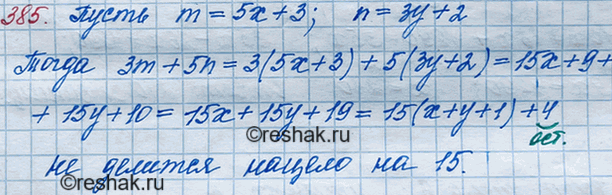 385. Пусть m = 5x + 3; n = 3y + 2
Тогда 3m + 5n = 3(5x + 3) + 5(3y + 2) = 15x + 9 +
+ 15y + 10 = 15x + 15y + 19 = 15(x + y + 1) + 4
ост.
©reshak.ru
©reshak.ru
не делится нацело на 15.